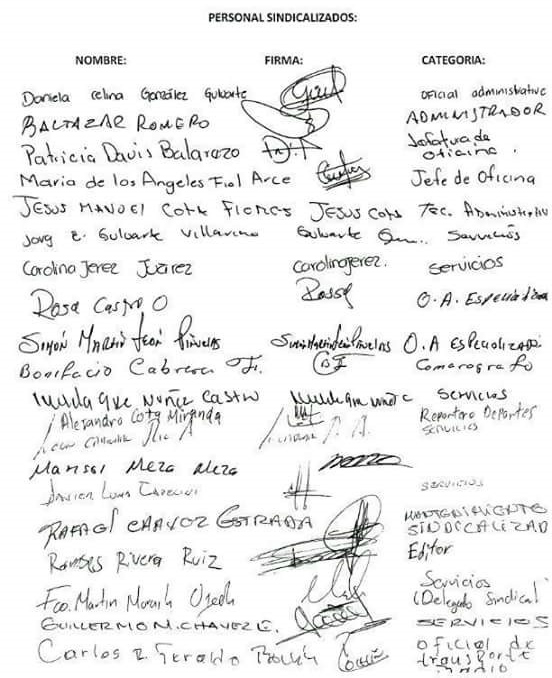 PERSONAL SINDICALIZADOS:
NOMBRE: FIRMA: CATEGORIA:
Daniela Celina González Guluarte oficial administrativo
BALTAZAR ROMERO ADMINISTRADOR
Patricia Davis Balarezo Jefatura de oficina.
Maria de los Angeles Fiol Arce Jefe de Oficina
JESUS MANUEL COTA Flores JESUS COTA Tec. Administrativo
Jorg E. Guluarte Villarino Guluarte Servicios
Carolina Jerez Juárez Carolinajerez. Servicios
Rosa Castro O Rossy O.A. Especializa
SIMÓN MARTIN León O.A ESPECIALIZADO
Bonifacio Cabrera F. Camarografo
NUÑEZ CASTRO SERVICIOS
Alejandro Cota Miranda Reportero Deportes
SERVICIOS
Marisol Meza Meza
Javier Luna SERVICIOS
RAFAEL CHAVEZ ESTRADA MANTENIMIENTO
SINDICALIZAD
Ramses Rivera Ruiz Editor
Fco. Martin Ojeda Servicios
(Delegado Sindical)
GUILLERMO N. CHAVEZ E. SERVICIOS
Carlos R. Geraldo oficial de
transporte